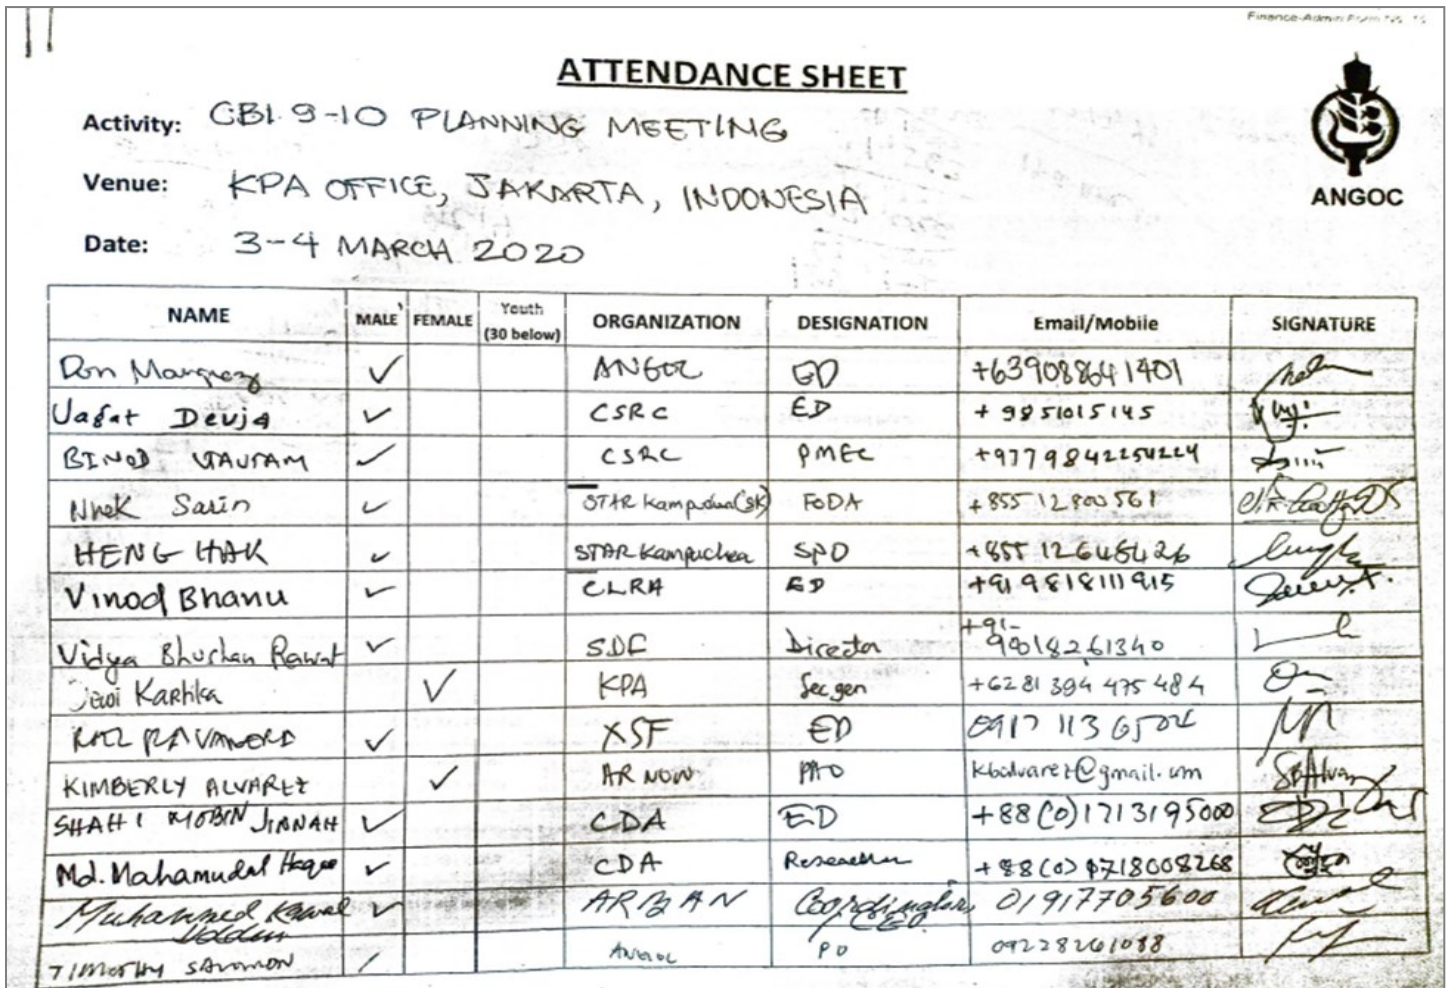 Finance-Admin Form No. 15
ATTENDANCE SHEET
ANGOC
Activity: CBI 9-10 PLANNING MEETING
Venue: KPA OFFICE, JAKARTA, INDONESIA
Date: 3-4 MARCH 2020
NAME MALE FEMALE Youth (30 below) ORGANIZATION DESIGNATION Email/Mobile SIGNATURE
Don Marquez ✓ ANGOC ED +639088641401
Jagat Deuja ✓ CSRC ED + 9851015145
BINOD GAUTAM ✓ CSRC PMEC +9779842254224
Nhek Sarin ✓ STAR Kampuchea (SK) FoDA +855 12 800 561
HENG HAK ✓ STAR Kampuchea SPO +855 12 648426
Vinod Bhanu ✓ CLRA ED +91 9818111915
Vidya Bhushan Rawat ✓ SDF Director +91- 9818261340
Dewi Kartika ✓ KPA Sec gen +6281 394 475 484
RAVANERA ✓ XSF ED 0917 113 6504
KIMBERLY ALVAREZ ✓ AR NOW PAO kbalvarez@gmail.com
SHAH I MOBIN JINNAH ✓ CDA ED +88(0)1713195000
Md. Mahamudul Haque ✓ CDA Researcher +88(0) 1718008268
Muhammed Kamal Uddin ✓ ARBAN Coordinator, CEO 01917705600
TIMOTHY SALOMON ✓ ANGOC PO 09228261088